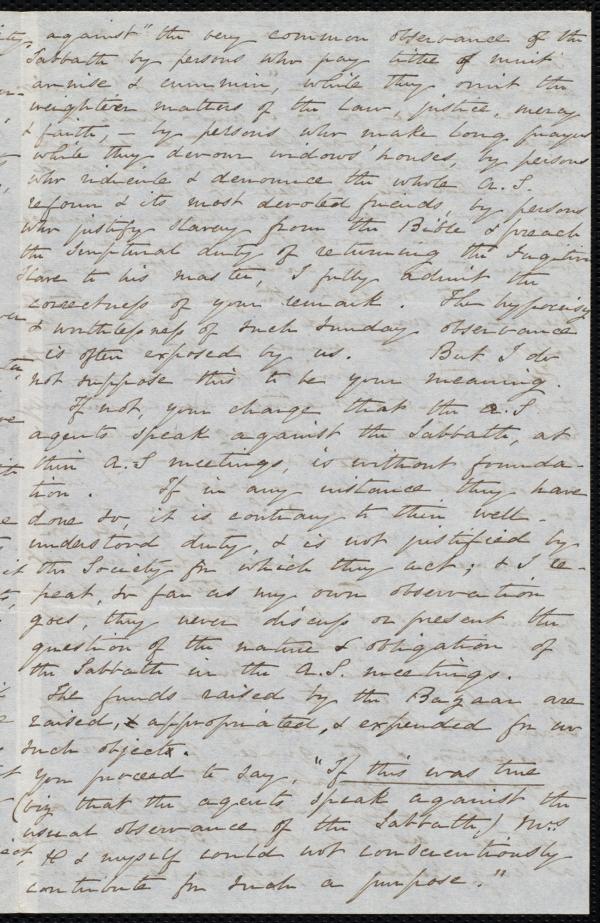 against "the very common observance of the
Sabbath by persons who pay tithe of mint
annise & cummin, while they omit the
weightier matters of the Law, justice, mercy
& faith, – by persons who make long prayers
while they devour widows' houses, by persons
who ridicule & denounce the whole A.S.
reform & its most devoted friends, by persons
who justify slavery from the Bible & preach
the Scriptural duty of returning the fugitive
slave to his master, I fully admit the
correctness of your remark. The hypocrisy
& worthlessness of such Sunday observance
is often exposed by us. But I do
not suppose this to be your meaning.
If not, your charge that the A.S
agents speak against the Sabbath, at
their A.S meetings, is without founda-
tion. If in any instance they have
done so, it is contrary to their well-
understood duty, & is not justified by
the Society for which they act; & I re-
peat, so far as my own observation
goes, they never discuss or present the
question of the nature & obligation of
the Sabbath in the A.S. meetings.
The funds raised by the Bazaar are
raised, & appropriated, & expended for no
such object.
You proceed to say, "If this was true
(viz that the agents speak against the
usual observance of the Sabbath) Mrs
H & myself could not conscientiously
contribute for such a purpose."